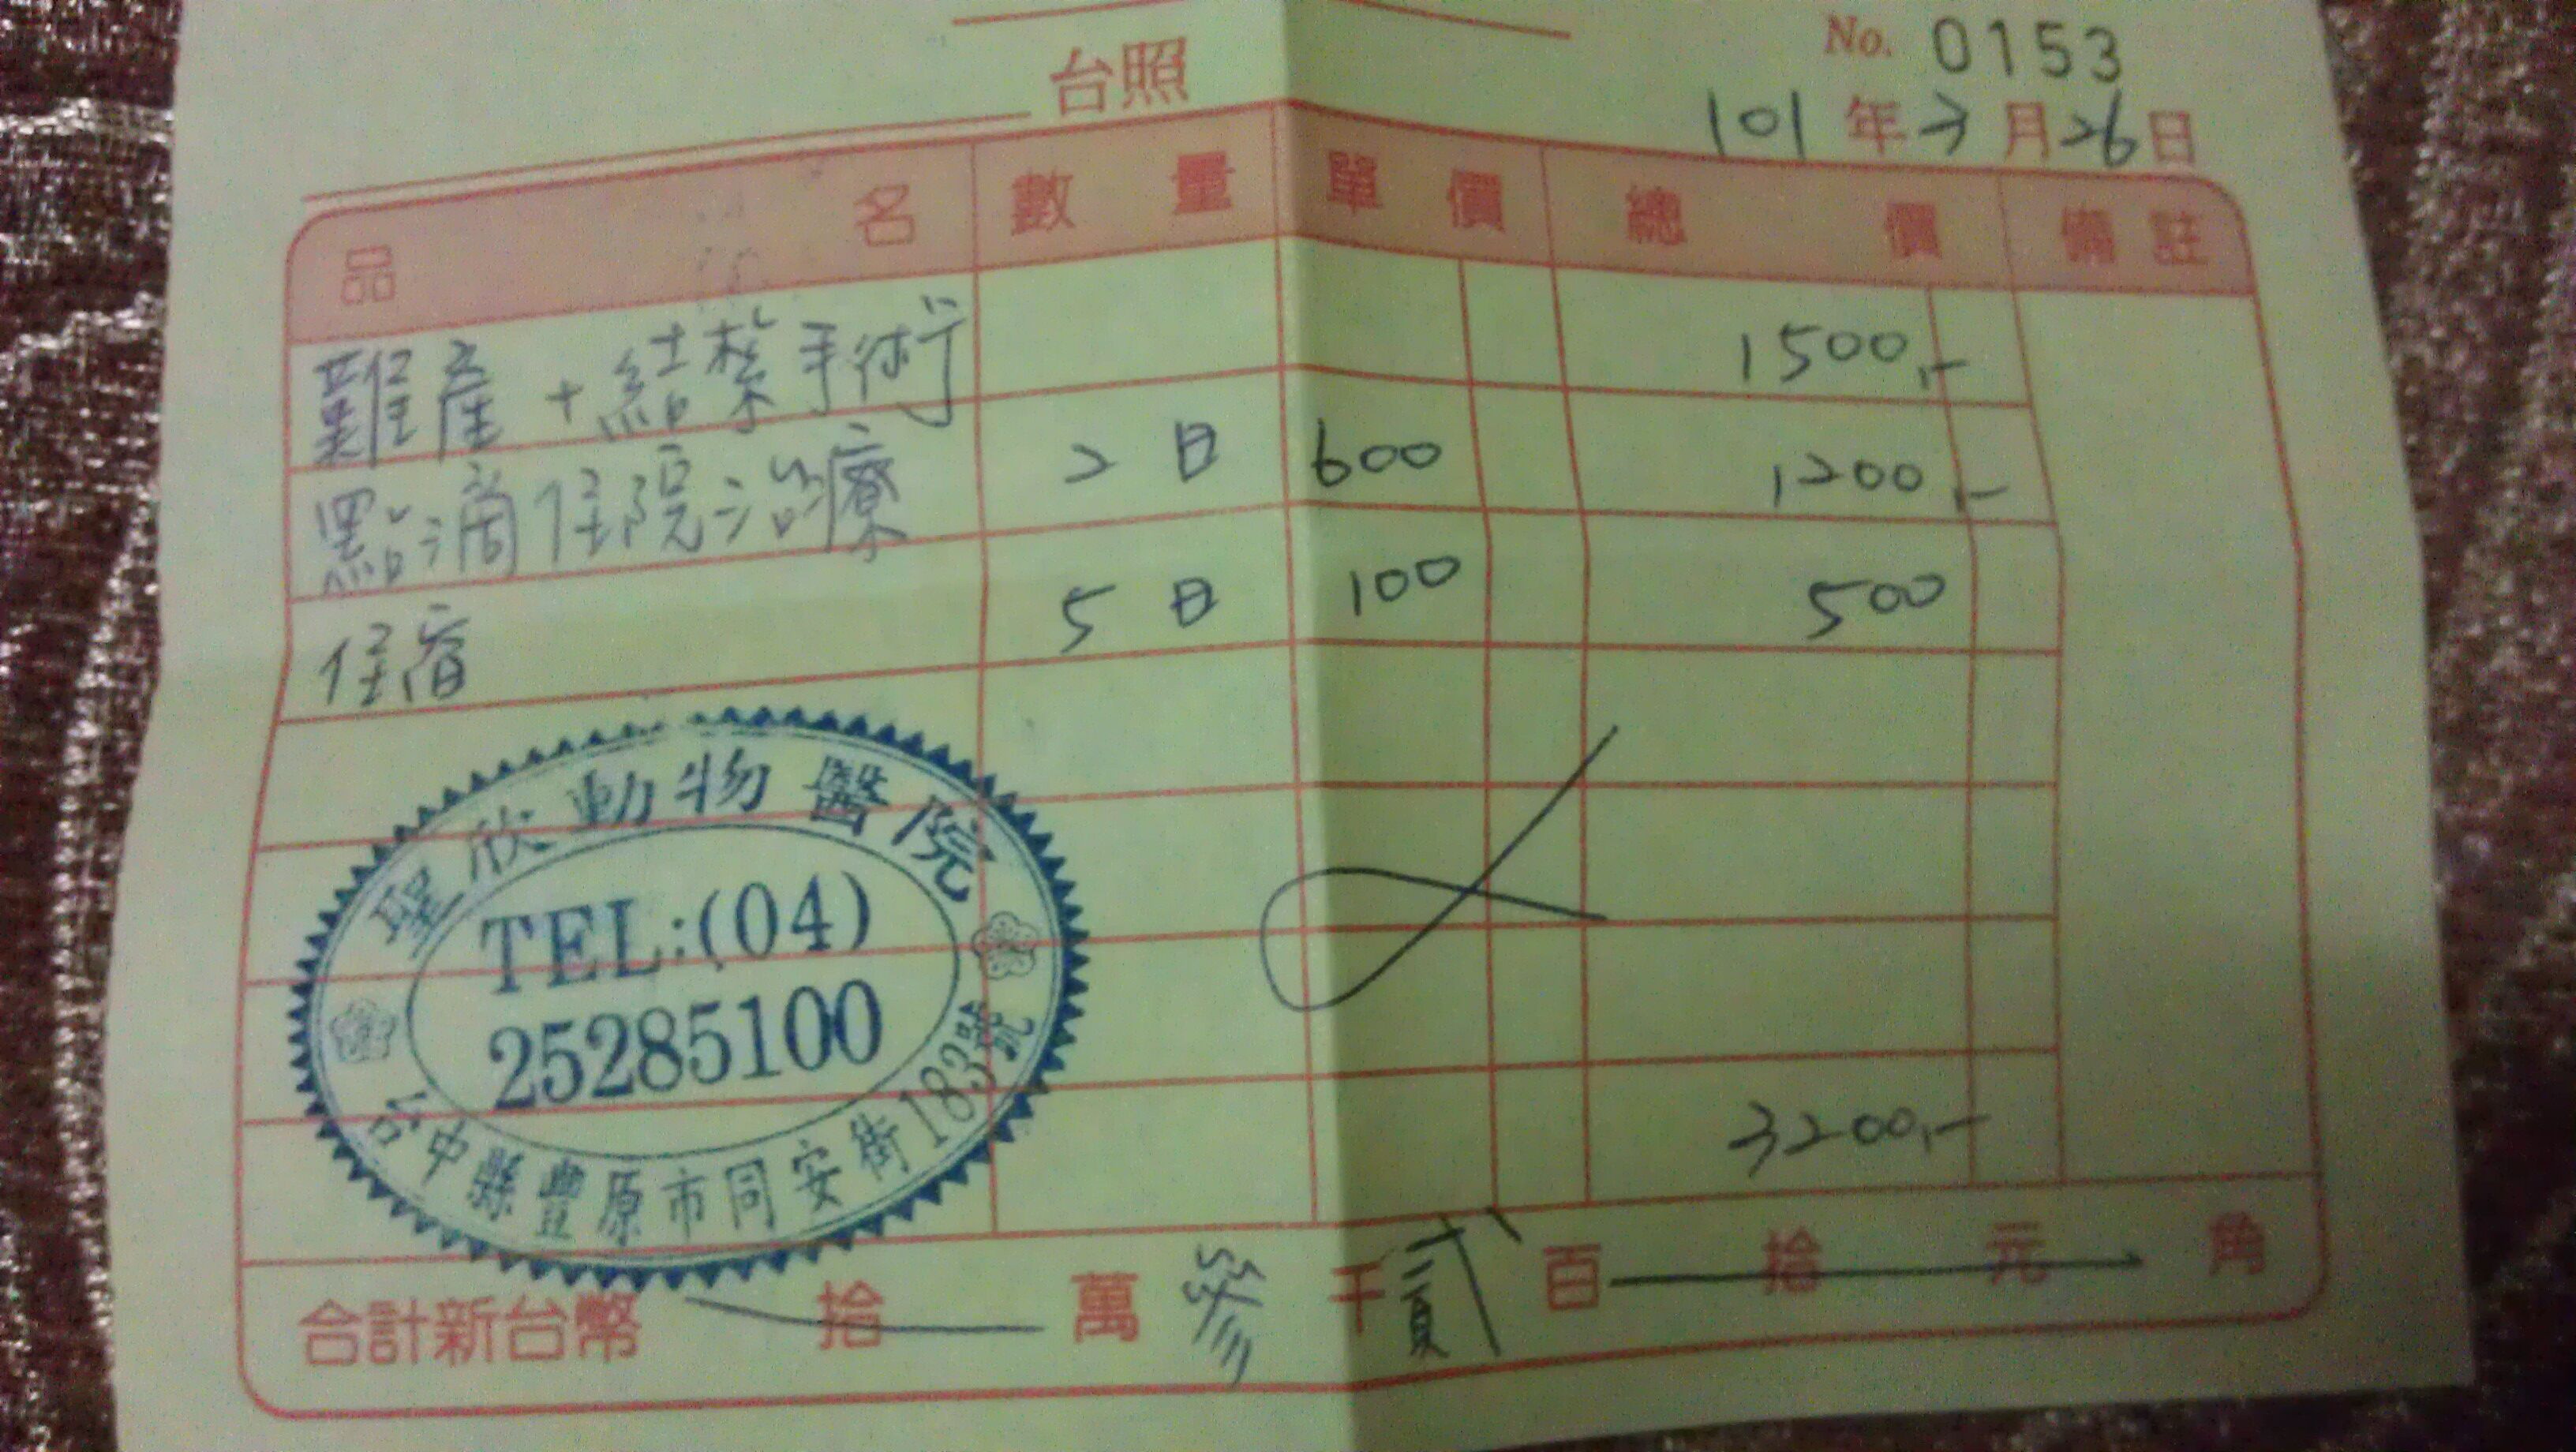 No. 0153
台照
101年 月26日
品名 數量 單價 總價 備註
難產+結紮手術 1500,-
點滴住院治療 2日 600 1200,-
住宿 5日 100 500
聖欣動物醫院
TEL:(04)
25285100
台中縣豐原市同安街183號
3200,-
合計新台幣 拾 萬 參 千 貳 百 拾 元 角